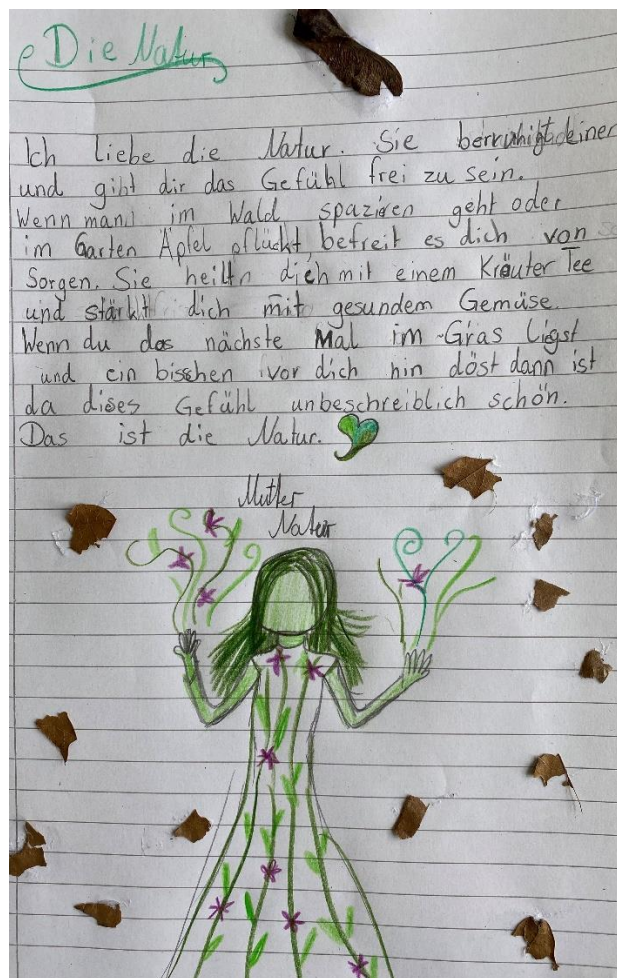 Die Natur
Ich liebe die Natur. Sie berruhigt deiner
und gibt dir das Gefühl frei zu sein.
Wenn man im Wald spaziren geht oder
im Garten Äpfel pflückt, befreit es dich von
Sorgen. Sie heilt dich mit einem Kräuter Tee
und stärkt dich mit gesundem Gemüse
Wenn du das nächste Mal im Gras ligst
und ein bisschen vor dich hin döst dann ist
da dises Gefühl unbeschreiblich schön.
Das ist die Natur.
Mutter
Natur